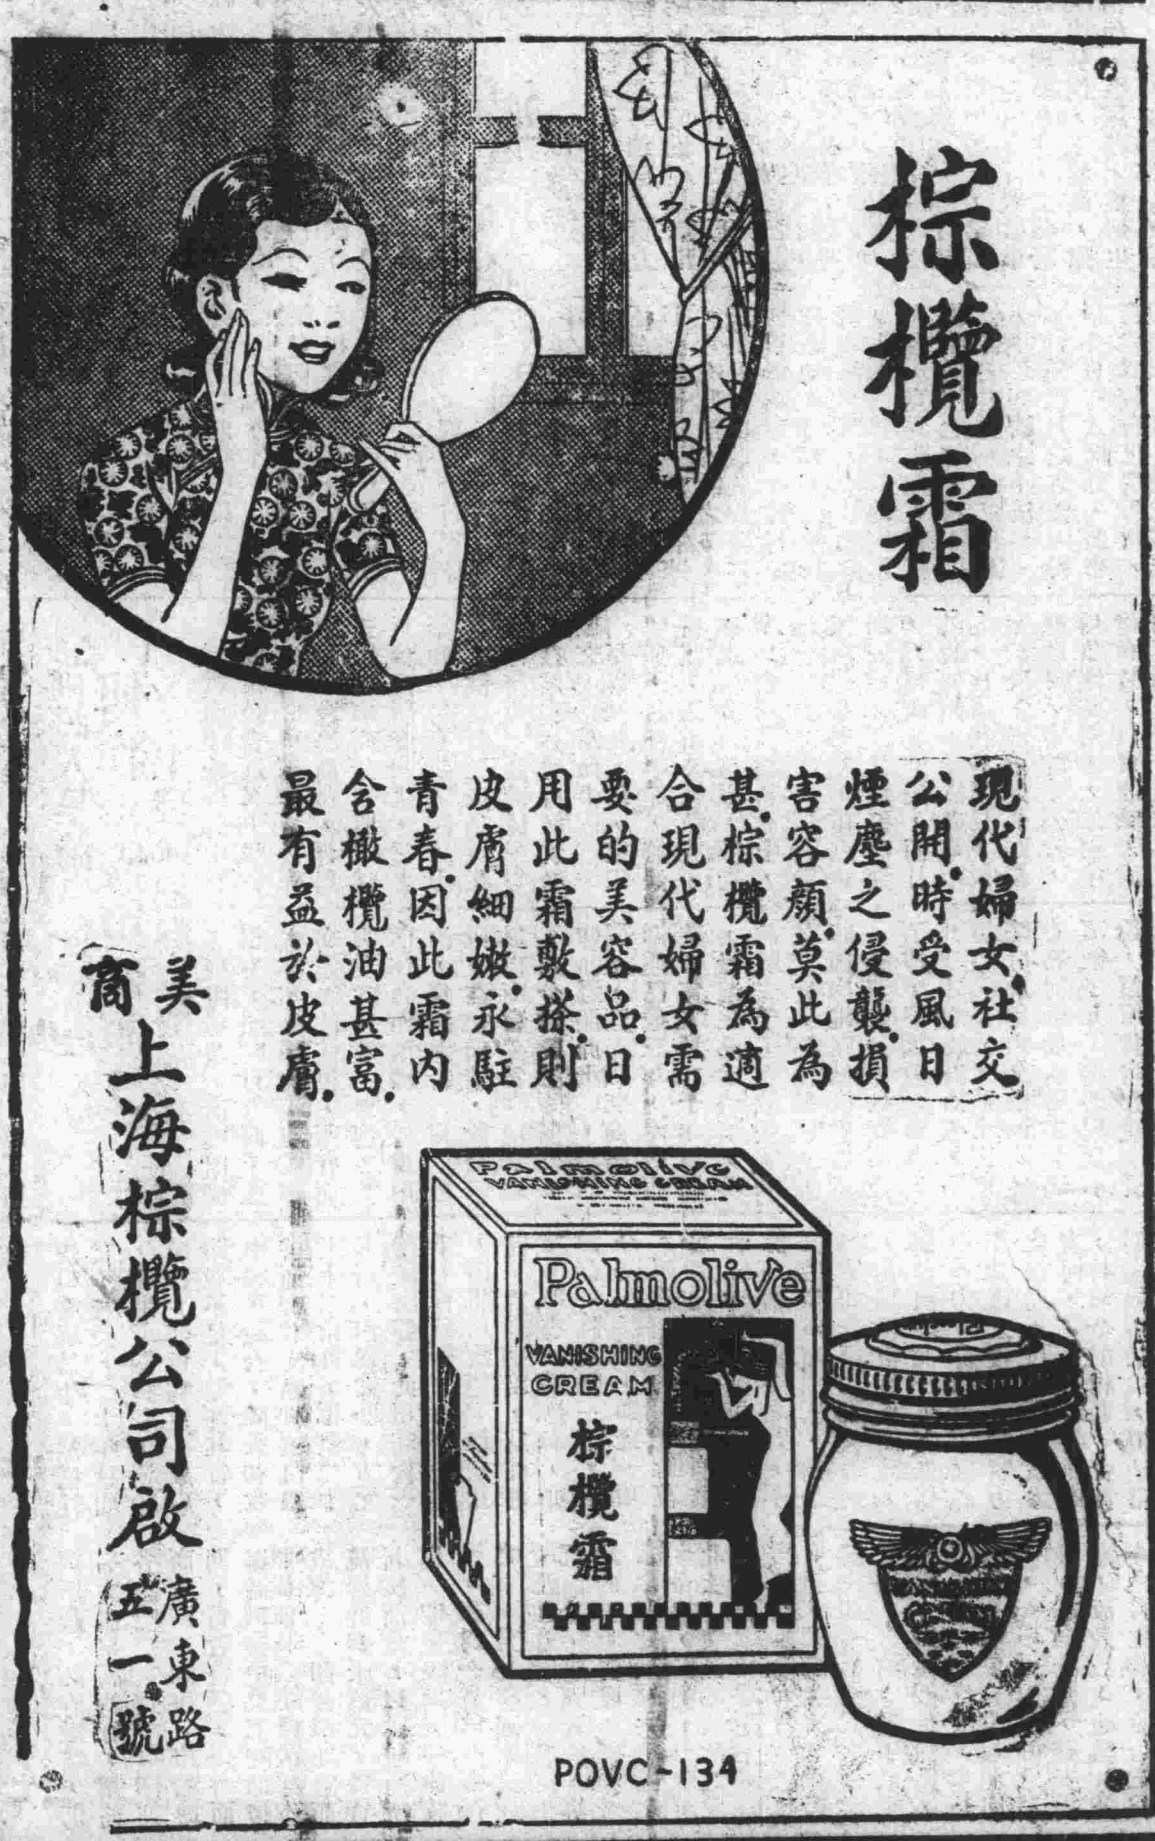 棕欖霜
現代婦女。社交
公開。時受風日
煙塵之侵襲。損
害容顏。莫此為
甚。棕欖霜為適
合現代婦女需
要的美容品。日
用此霜敷搽。則
皮膚細嫩。永駐
青春。因此霜內
含橄欖油甚富。
最有益於皮膚。
美商
上海棕欖公司啟
廣東路
五一號
Palmolive
VANISHING CREAM
Palmolive
VANISHING
CREAM
棕欖霜
POVC-134